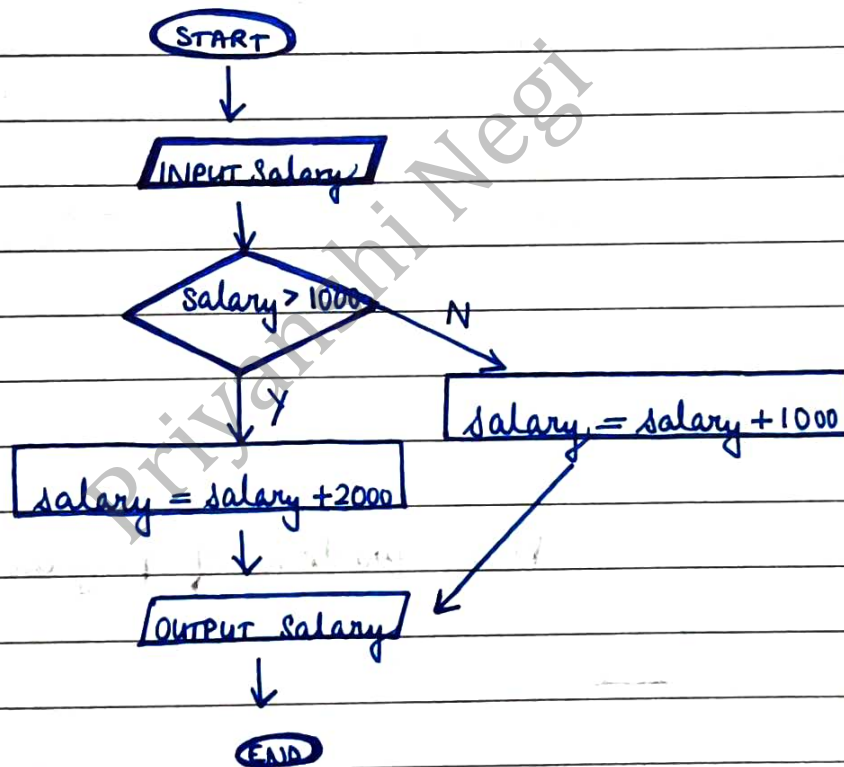 START
INPUT Salary
Salary > 1000
N
Y
salary = salary + 1000
salary = salary +2000
OUTPUT Salary
END
Priyanshi Negi